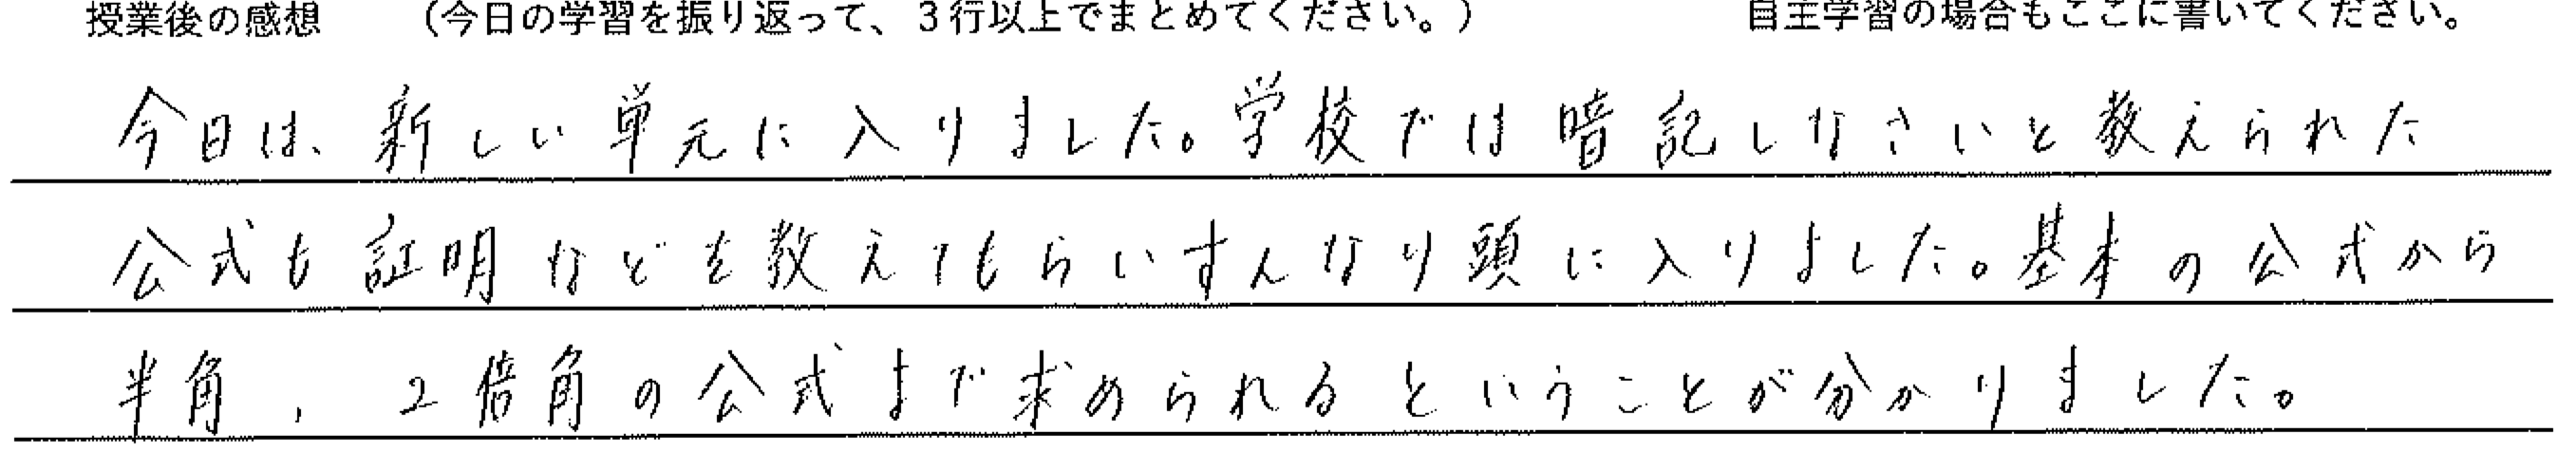 授業後の感想　（今日の学習を振り返って、３行以上でまとめてください。）　自主学習の場合もここに書いてください。
今日は、新しい単元に入りました。学校では暗記しなさいと教えられた
公式も証明などを教えてもらいすんなり頭に入りました。基本の公式から
半角，２倍角の公式まで求められるということが分かりました。